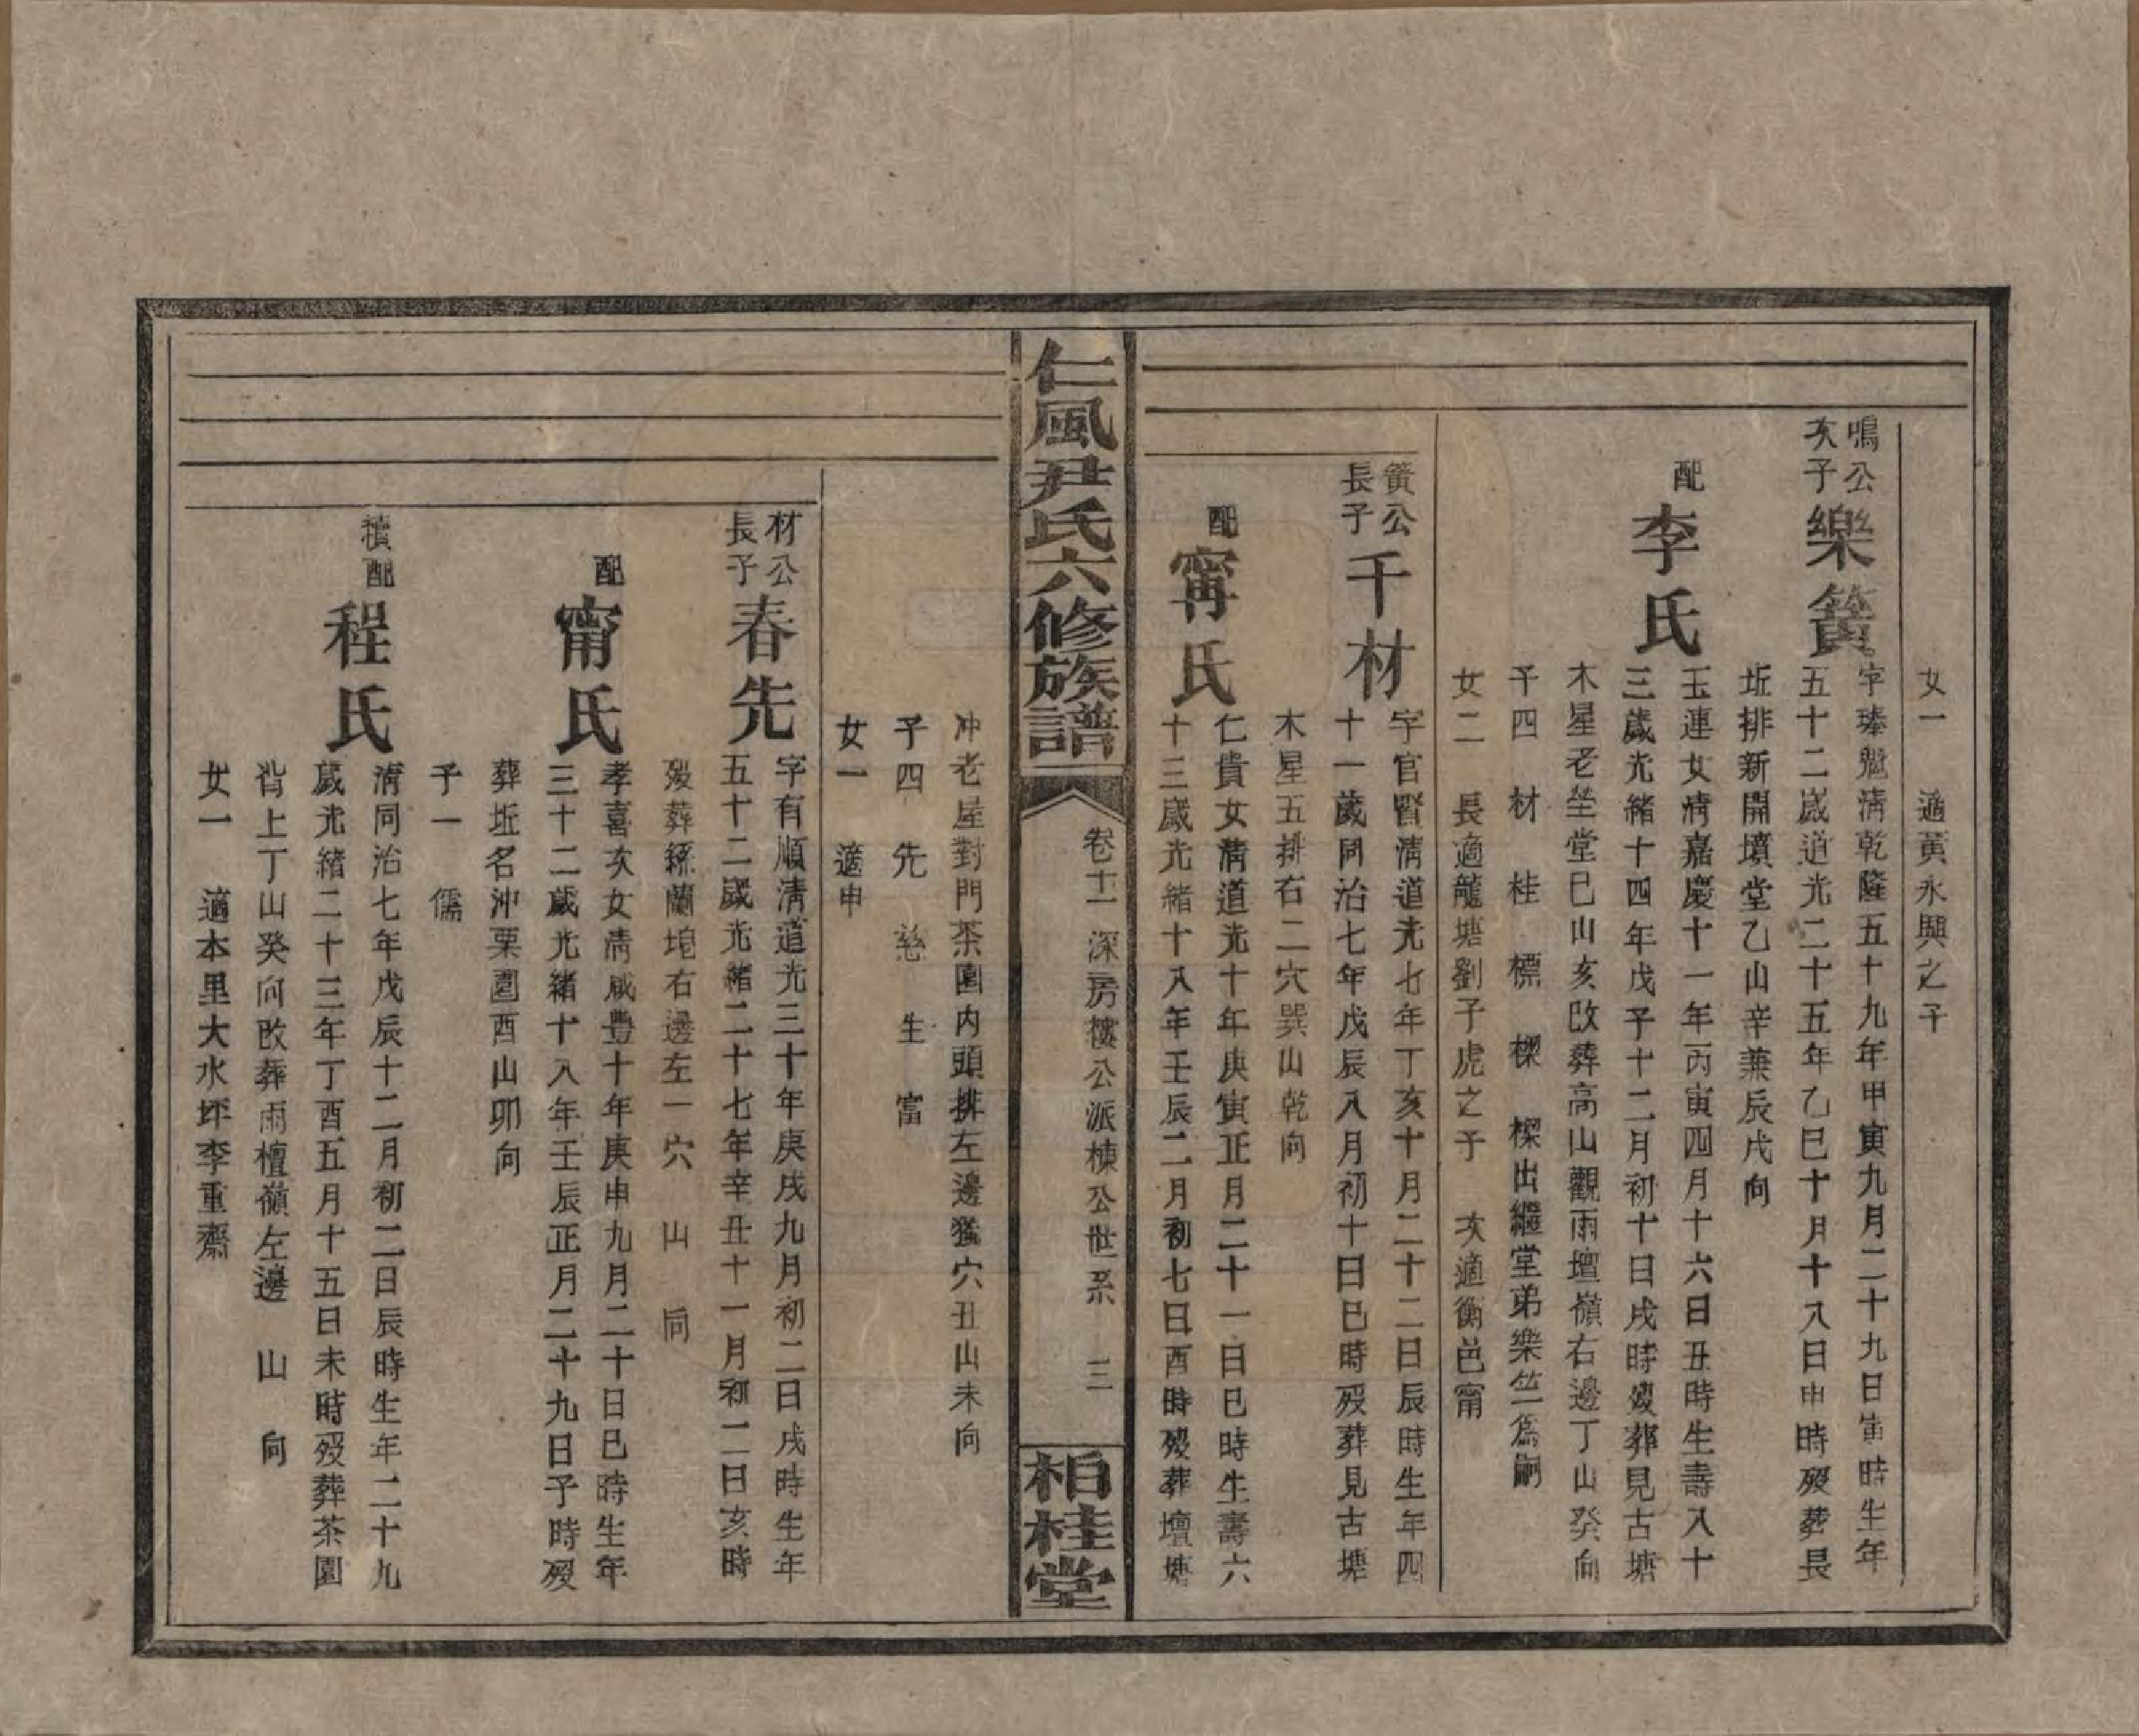 女一 適黃永興之子
鳴公次子
樂簧
字琫魁清乾隆五十九年甲寅九月二十九日寅時生年
五十二歲道光二十五年乙巳十月十八日申時歿葬長
坵排新開墳堂乙山辛兼辰戌向
配
李氏
玉連女清嘉慶十一年丙寅四月十六日丑時生壽八十
三歲光緒十四年戊子十二月初十日戌時歿葬見古塘
木星老坐堂巳山亥改葬高山觀雨壇嶺右邊丁山癸向
子四 材 桂 標 樑 樑出繼堂弟樂竺爲嗣
女二 長適龍塘劉子虎之子 次適衡邑甯
簧公長子
千材
字官賢清道光七年丁亥十月二十二日辰時生年四
十一歲同治七年戊辰八月初十日巳時歿葬見古塘
木星五排右二穴巽山乾向
配
甯氏
仁貴女清道光十年庚寅正月二十一日巳時生壽六
十三歲光緒十八年壬辰二月初七日酉時歿葬壇塘
仁風尹氏六修族譜
卷十一 深房攓公派棟公世系 三
柏桂堂
冲老屋對門茶園内頭排左邊獨穴丑山未向
子四 先 慈 生 富
女一 適申
材公長子
春先
字有順清道光三十年庚戌九月初二日戌時生年
五十二歲光緒二十七年辛丑十一月初二日亥時
歿葬絲蘭坨右邊左一穴 山 向
配
甯氏
孝喜次女清咸豐十年庚申九月二十日巳時生年
三十二歲光緒十八年壬辰正月二十九日子時歿
葬坵名沖栗園酉山卯向
子一 儒
續配
程氏
清同治七年戊辰十二月初二日辰時生年二十九
歲光緒二十三年丁酉五月十五日未時歿葬茶園
背上丁山癸向改葬雨檀嶺左邊 山 向
女一 適本里大水坪李重齋